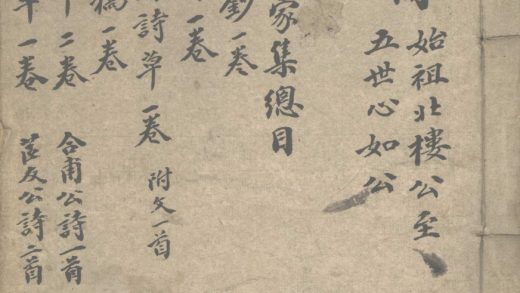 始祖北樓公至
五世心如公
家集總目
一卷
一卷
詩草一卷 附文一首
稿一卷
二卷 合甫公詩一首
一卷 友公詩二首